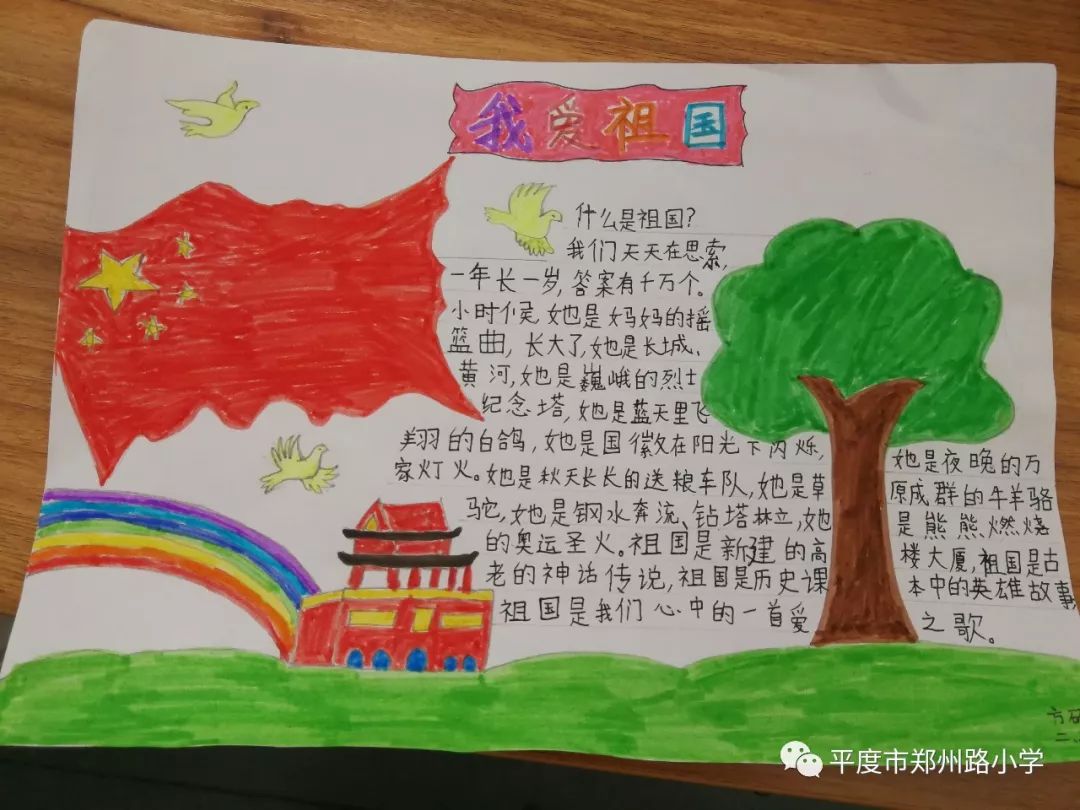 我爱祖国
什么是祖国?
我们天天在思索,
一年长一岁,答案有千万个。
小时候,她是妈妈的摇
篮曲,长大了,她是长城、
黄河,她是巍峨的烈士
纪念塔,她是蓝天里飞
翔的白鸽,她是国徽在阳光下闪烁, 她是夜晚的万
家灯火。她是秋天长长的送粮车队,她是草 原成群的牛羊骆
驼,她是钢水奔流、钻塔林立,她 是熊熊燃烧
的奥运圣火。祖国是新建的高 楼大厦,祖国是古
老的神话传说,祖国是历史课 本中的英雄故事
祖国是我们心中的一首爱 之歌。
平度市郑州路小学